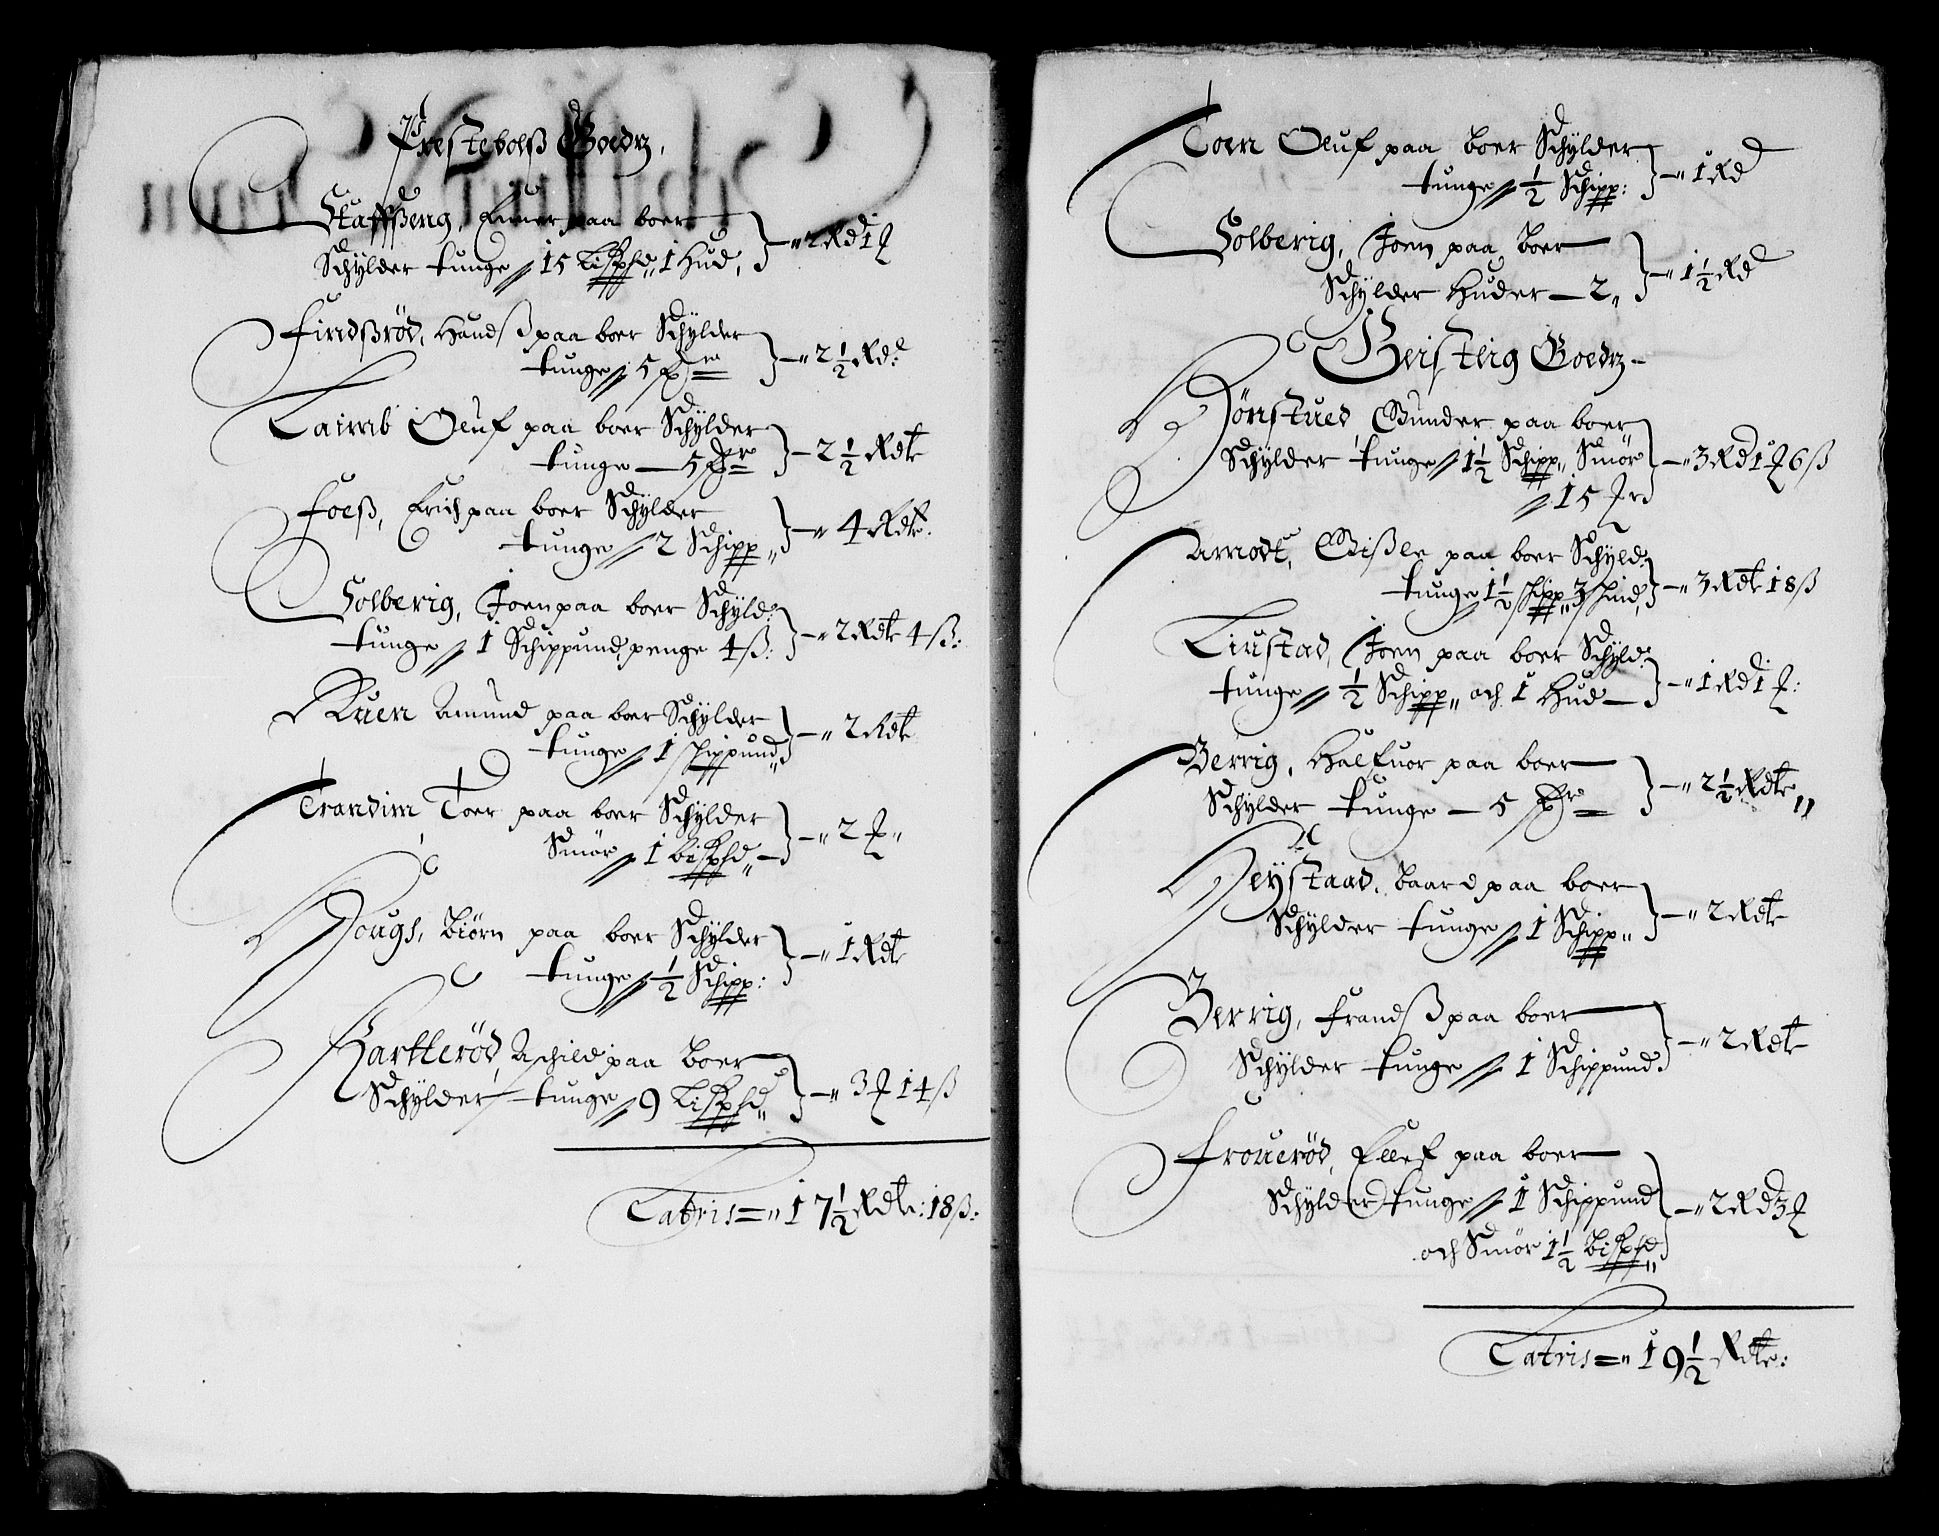 Prestebolß Goedz,
Staffßerig, Einer paa boer
Schylder tunge 15 Lispd 1 Hud, } — 2 Rd 1 ƒ
Findßrød, Handß paa boer Schylder
tunge 5 fr } — 2 1/2 Rd:
Laimb Oluf paa boer Schylder
tunge — 5 fr } — 2 1/2 Rdt
Foeß, Erich paa boer Schylder
tunge 2 Schipp } — 4 Rdt.
Solberig, Joen paa boer Schyld:
tunge 1 Schippund, penge 4 ß: } — 2 Rdt 4 ß:
Ruen Amund paa boer Schylder
tunge 1 schippund } — 2 Rdt
Trandim Toer paa boer Schylder
Smør 1 Bispd } — 2 ƒ
Hougs, Biørn paa boer Schylder
tunge 1/2 Schipp: } — 1 Rdt
Kartterød, Aschild paa boer
Schylder tunge 9 Lispd } — 3 ƒ 14 ß
Latris = 17 1/2 Rdt: 18 ß:
Toen Oluf paa boer Schylder
tunge 1/2 Schipp: } — 1 Rd
Solberig, Joen paa boer
Schylder Huder — 2 } — 1 1/2 Rd
Geistlig Goedz
Hønstued Gunder paa boer
Schylder tunge 1 1/2 Schipp Smør } — 3 Rd 1 ƒ 6 ß
15
Arnodt, Gißle paa boer Schyld:
tunge 1 1/2 schipp 3 schind } — 3 Rdt 18 ß
Liustad, Joen paa boer Schyld:
tunge 1/2 Schipp och 1 Hud } — 1 Rd 1 ƒ:
Berrig, Halfuor paa boer
Schylder tunge — 5 fr } — 2 1/2 Rdt
Heystaad, Baard paa boer
Schylder tunge 1 Schipp } — 2 Rdt
Berrig, Frandß paa boer
Schylder tunge 1 Schippund: } — 2 Rdt
Frouerød, Ellef paa boer
Schylder tunge 1 Schippund } — 2 Rd 3 ƒ
och Smør 1 1/2 Bispd
Latris = 19 1/2 Rdt: